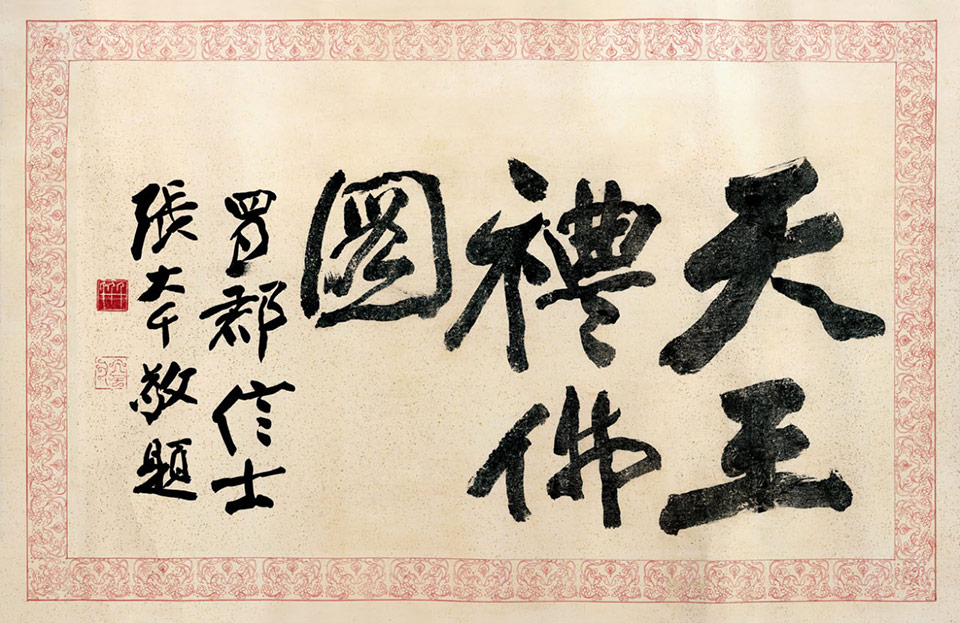 天王
禮佛
圖
蜀郡信士
張大千敬題